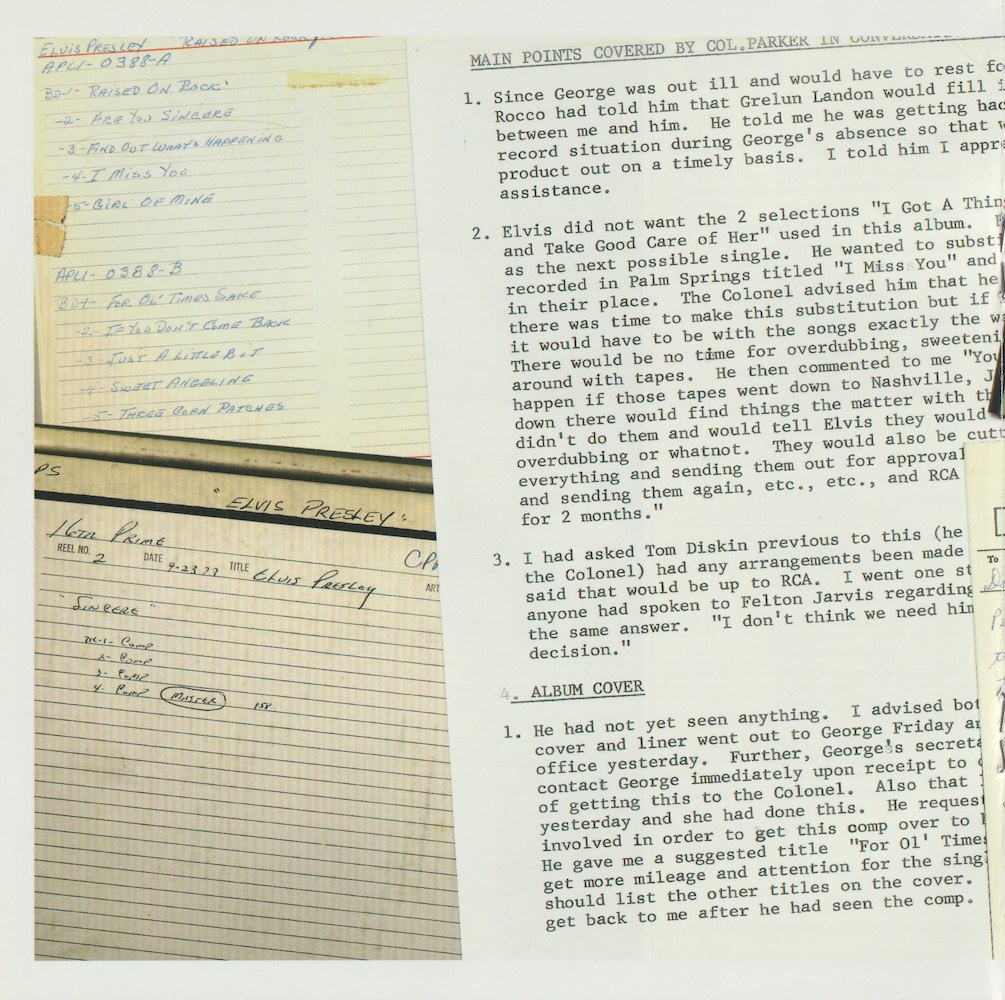 ELVIS PRESLEY "RAISED ON ROCK/
APL1-0388-A
BD-1- RAISED ON ROCK'
-2- ARE YOU SINCERE
-3-FIND OUT WHAT'S HAPPENING
-4-I MISS YOU
-5-GIRL OF MINE
APL1-0388-B
BD1- FOR OL' TIMES SAKE
-2- IF YOU DON'T COME BACK
-3-JUST A LITTLE BIT
-4- SWEET ANGELINE
-5- THREE CORN PATCHES
PS
"ELVIS PRESLEY":
16TH PRIME
CP
REEL NO. 2 DATE 9-23-73 TITLE ELVIS PRESLEY
ART
"SINCERE"
TK-1- COMP
2- COMP
3- COMP
4- COMP MASTER 158
MAIN POINTS COVERED BY COL.PARKER IN
1. Since George was out ill and would have to rest fo
Rocco had told him that Grelun Landon would fill i
between me and him. He told me he was getting bac
record situation during George's absence so that w
product out on a timely basis. I told him I appre
assistance.
2. Elvis did not want the 2 selections "I Got A Thin
and Take Good Care of Her" used in this album.
as the next possible single. He wanted to substi
recorded in Palm Springs titled "I Miss You" and
in their place. The Colonel advised him that he
there was time to make this substitution but if
it would have to be with the songs exactly the wa
There would be no time for overdubbing, sweeteni
around with tapes. He then commented to me "You
happen if those tapes went down to Nashville, J
down there would find things the matter with th
didn't do them and would tell Elvis they would
overdubbing or whatnot. They would also be cutt
everything and sending them out for approval
and sending them again, etc., etc., and RCA
for 2 months."
3. I had asked Tom Diskin previous to this (he
the Colonel) had any arrangements been made
said that would be up to RCA. I went one st
anyone had spoken to Felton Jarvis regarding
the same answer. "I don't think we need him
decision."
4. ALBUM COVER
1. He had not yet seen anything. I advised bot
cover and liner went out to George Friday an
office yesterday. Further, George's secreta
contact George immediately upon receipt to
of getting this to the Colonel. Also that
yesterday and she had done this. He request
involved in order to get this comp over to
He gave me a suggested title "For Ol' Times
get more mileage and attention for the singl
should list the other titles on the cover.
get back to me after he had seen the comp.
To